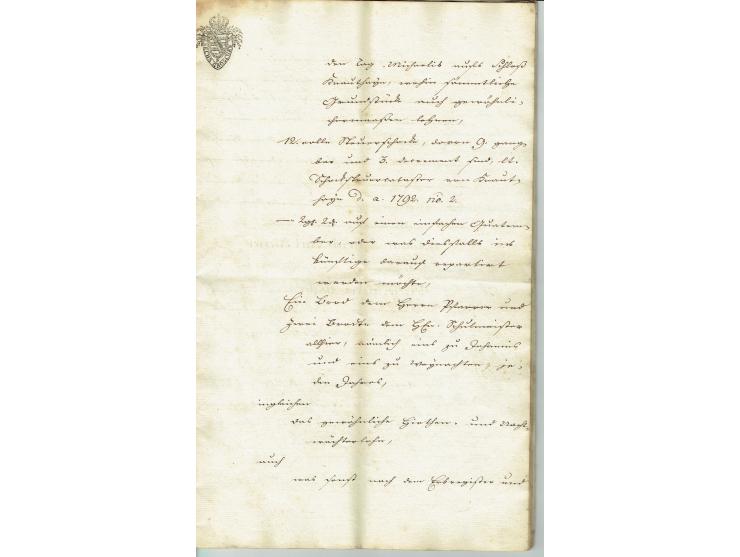 den Tag Michaelis aufs Schloß
Knauthayn, wohin sämmtliche
Grundstücke auch gewöhnli-
chermaaßen lehnen,
12. volle Steuerschocke, davon 9. gang-
bar und 3. decrement sind, lt.
Schocksteuercataster von Knaut-
hayn d. a. 1792. no. 2.
— 2gl. 2d. auf einen einfachen Quatem-
ber, oder was diesfalls ins
künftige darauf repartirt
werden möchte,
Ein Brod dem Herrn Pfarrer und
zwei Brodte dem HEn. Schulmeister
allhier, nämlich eins zu Johannis
und eins zu Weynachten, je-
den Jahres,
ingleichen
das gewöhnliche Hirthen- und Nacht-
wächterlohn,
auch
was sonst nach dem Erbregister und